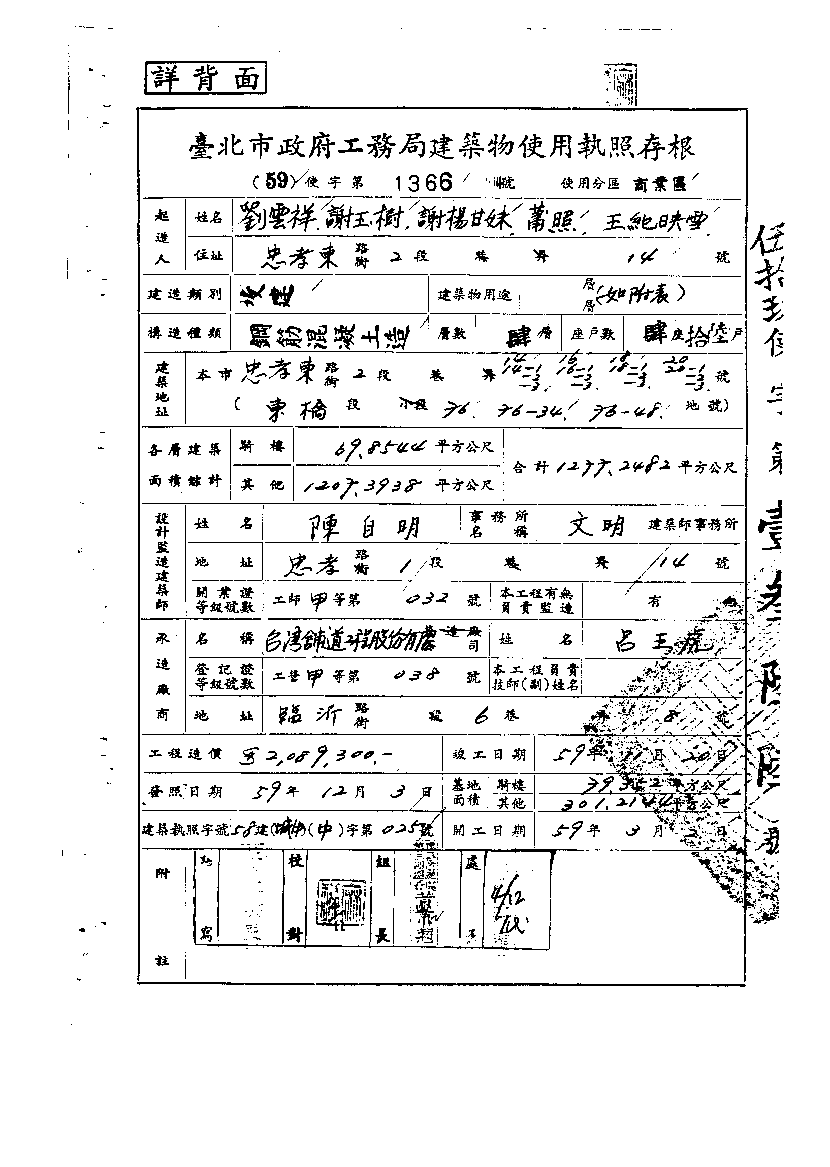 詳背面
臺北市政府工務局建築物使用執照存根
(59)使字第 1366 號 使用分區 商業區
起造人 姓名 劉雲祥 謝玉樹 謝楊甘妹 蕭照 王純映雪
住址 忠孝東 路街 2 段 巷 弄 14 號
建造類別 改建 建築物用途 層層 (如附表)
構造種類 鋼筋混凝土造 層數 肆層 座戶數 肆座拾陸戶
建築地址 本市 忠孝東 路街 2 段 巷 弄 號
(東橋 段 小段 36. 36-34. 36-48. 地號)
各層建築面積總計 騎樓 69.8544 平方公尺 合計 1277.2482 平方公尺
其他 1207.3938 平方公尺
設計監造建築師 姓名 陳自明 事務所名稱 文明 建築師事務所
地址 忠孝 路街 1 段 巷 弄 14 號
開業證等級號數 工師甲等第 032 號 本工程有無負責監造 有
承造廠商 名稱 台灣舖道工程股份有 司 姓名 呂玉
登記證等級號數 工營甲等第 038 號 本工程負責技師(副)姓名
地址 臨沂 路街 段 6 巷 弄 8 號
工程造價 2,089,300.- 竣工日期 59年 11月 20日
發照日期 59年 12月 3日 基地面積 騎樓 39.352 平方公尺
其他 301.2144 平方公尺
建築執照字號 58建( )(中)字第025號 開工日期 59年 3月 日
附註 寫 校對 組長 處
4/12
伍拾玖使字第壹叁陸陸號